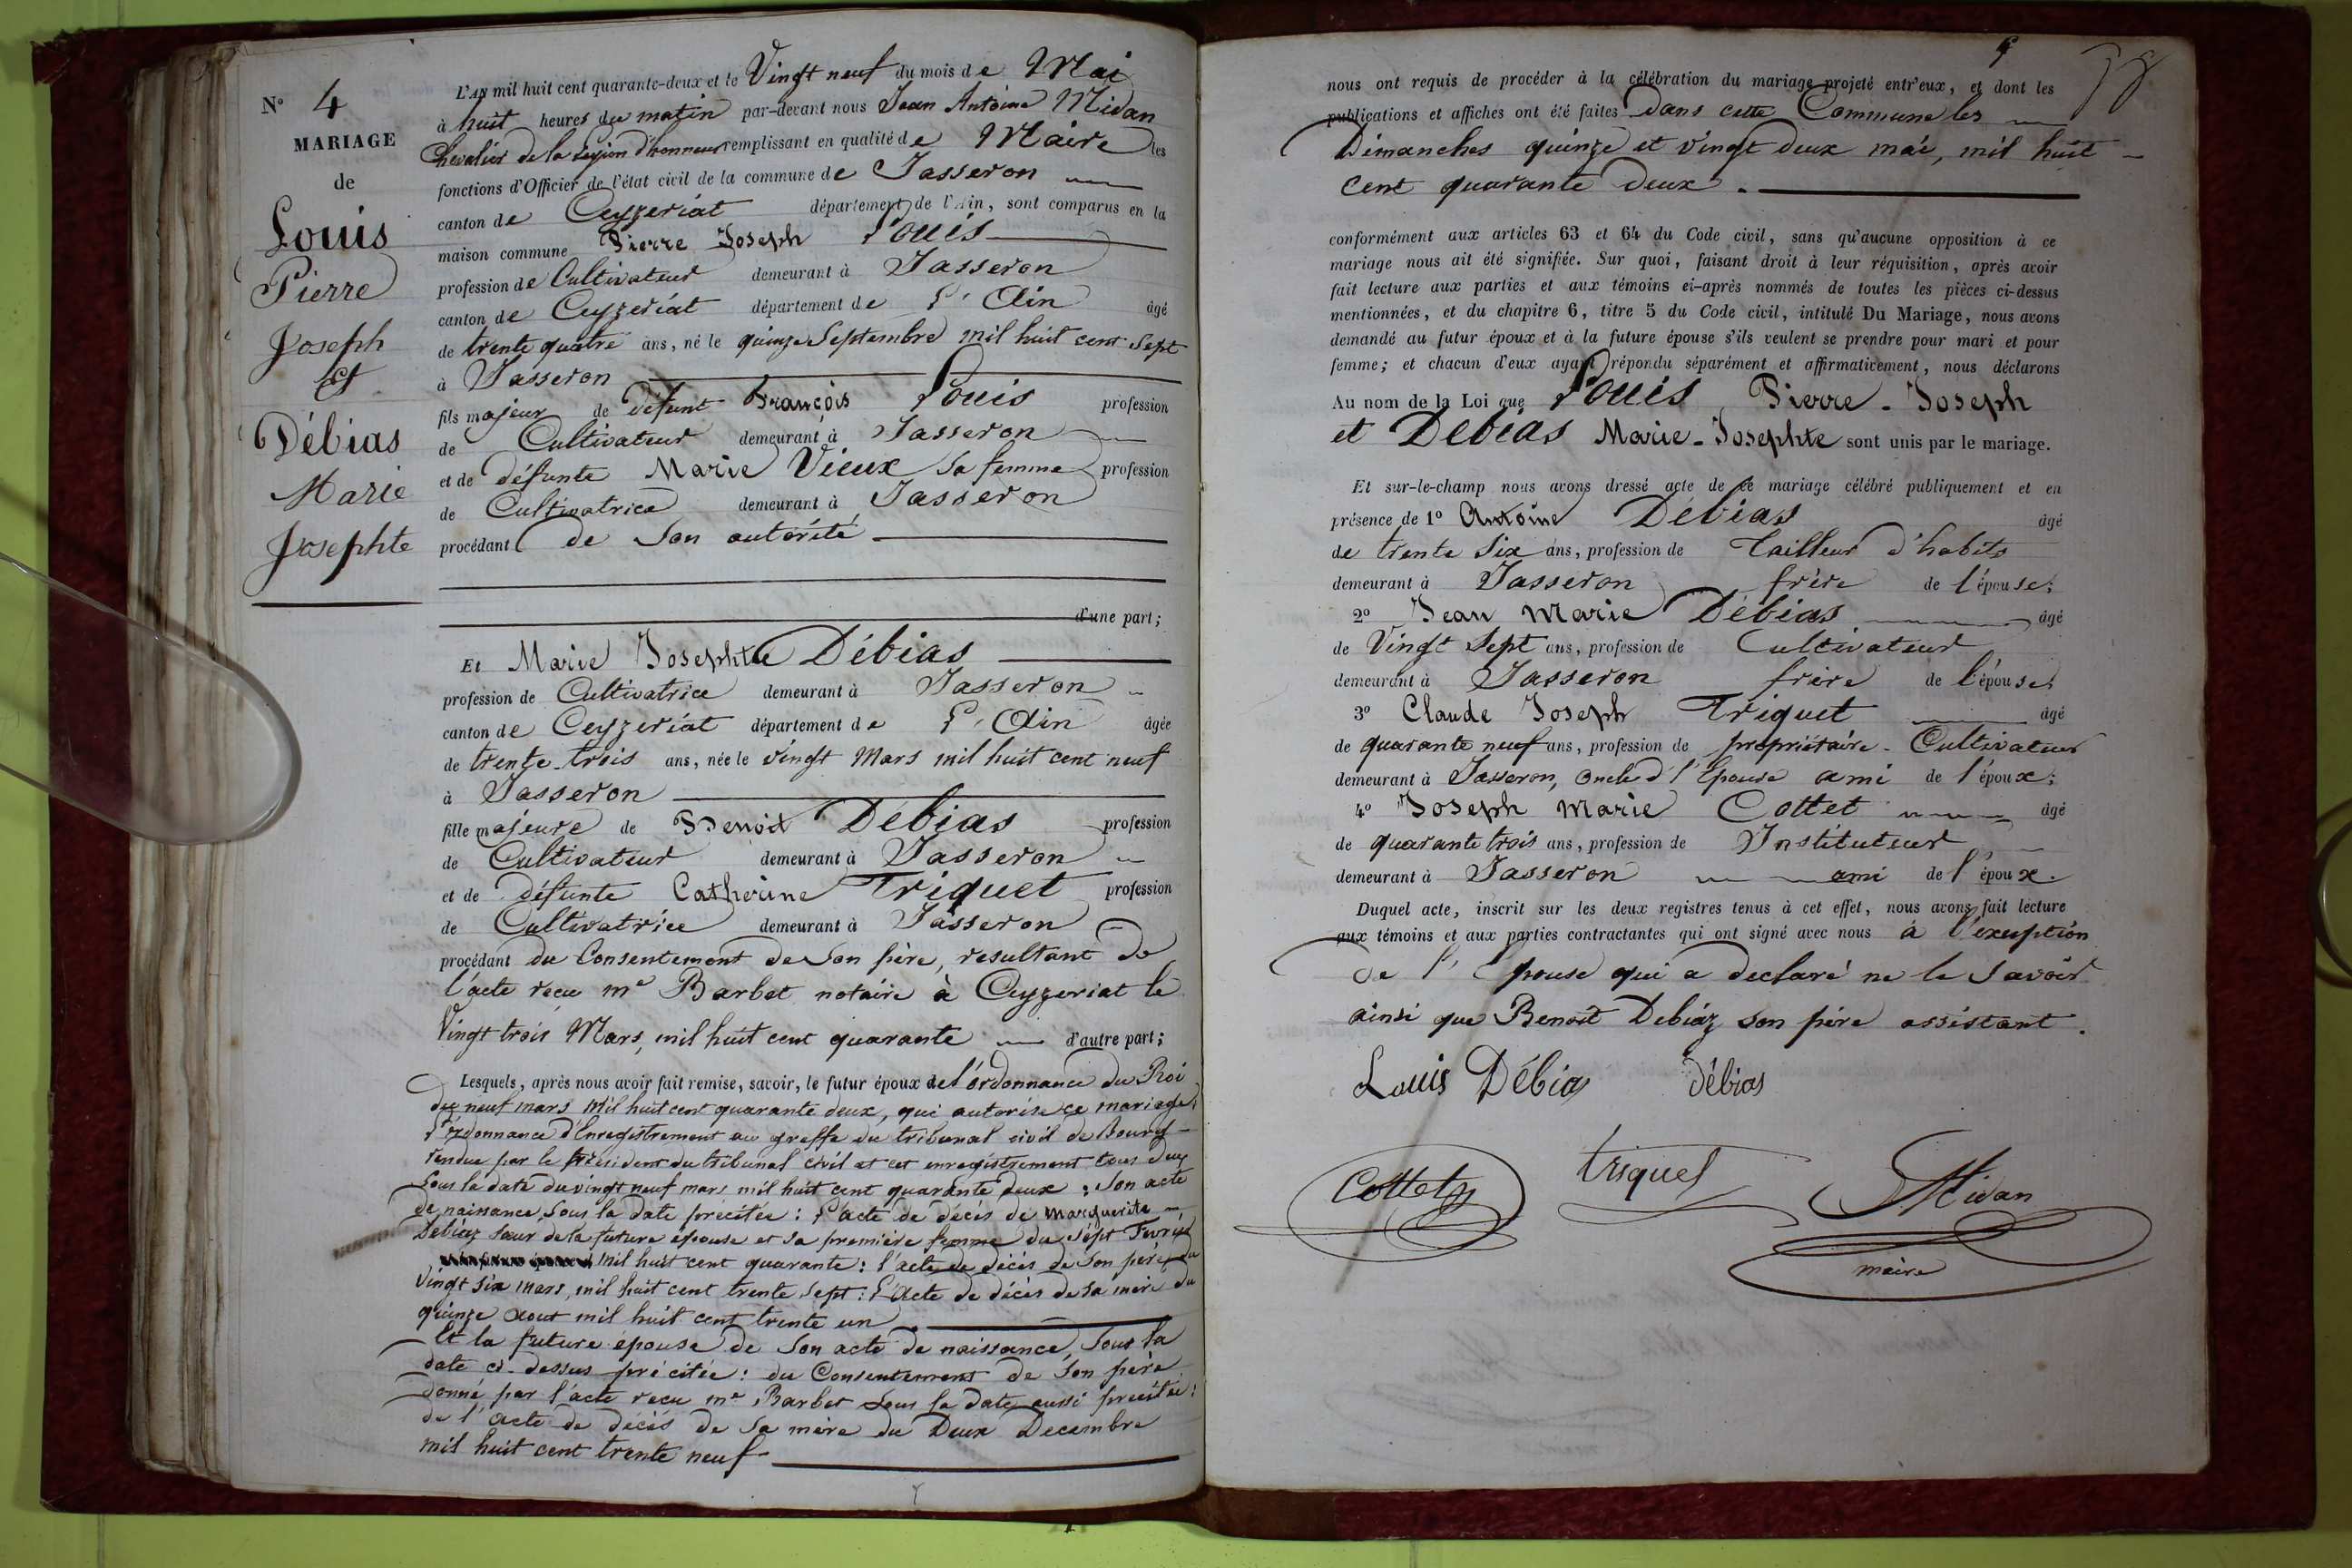 N° 4
MARIAGE
de
Louis
Pierre
Joseph
Et
Débias
Marie
Josephte
L'AN mil huit cent quarante-deux et le Vingt neuf du mois de Mai
à huit heures du matin par-devant nous Jean Antoine Midan
Chevalier de la Legion d'honneur remplissant en qualité de Maire les
fonctions d'Officier de l'état civil de la commune de Jasseron
canton de Ceyzeriat département de l'Ain, sont comparus en la
maison commune Pierre Joseph Louis
profession de Cultivateur demeurant à Jasseron
canton de Ceyzeriat département de L'Ain âgé
de trente quatre ans, né le quinze Septembre mil huit cent Sept
à Jasseron
fils majeur de défunt François Louis profession
de Cultivateur demeurant à Jasseron
et de défunte Marie Vieux sa femme profession
de Cultivatrice demeurant à Jasseron
procédant de son autorité
d'une part;
Et Marie Josephte Débias
profession de Cultivatrice demeurant à Jasseron
canton de Ceyzeriat département de L'Ain âgée
de trente trois ans, née le vingt Mars mil huit cent neuf
à Jasseron
fille majeure de Benoit Débias profession
de Cultivateur demeurant à Jasseron
et de défunte Catherine Triquet profession
de Cultivatrice demeurant à Jasseron
procédant du Consentement de son père, resultant de
l'acte reçu me Barbet notaire à Ceyzeriat le
Vingt trois Mars, mil huit cent quarante d'autre part;
Lesquels, après nous avoir fait remise, savoir, le futur époux de l'ordonnance du Roi
du neuf mars mil huit cent quarante deux, qui autorise ce mariage;
L'ordonnance d'Enregistrement au greffe du tribunal civil de Bourg
rendue par le président du tribunal civil et cet enregistrement tous deux
sous la date du vingt neuf mars mil huit cent quarante deux : Son acte
de naissance sous la date précitée : L'acte de décès de Marguerite
Debiaz sœur de la future épouse et sa première femme du sept Fevrier
mil huit cent quarante : l'acte de décès de son père du
vingt six mars, mil huit cent trente sept : L'acte de décès de sa mère du
quinze aout mil huit cent trente un
Et la future épouse de son acte de naissance, sous la
date ci-dessus précitée : du Consentement de son père
donné par l'acte reçu me Barbet sous la date aussi precitée :
de l'acte de décès de sa mère du Deux Decembre
mil huit cent trente neuf
nous ont requis de procéder à la célébration du mariage projeté entr'eux, et dont les
publications et affiches ont été faites dans cette Commune les
Dimanches quinze et vingt deux mai, mil huit
cent quarante deux.
conformément aux articles 63 et 64 du Code civil, sans qu'aucune opposition à ce
mariage nous ait été signifiée. Sur quoi, faisant droit à leur réquisition, après avoir
fait lecture aux parties et aux témoins ci-après nommés de toutes les pièces ci-dessus
mentionnées, et du chapitre 6, titre 5 du Code civil, intitulé Du Mariage, nous avons
demandé au futur époux et à la future épouse s'ils veulent se prendre pour mari et pour
femme; et chacun d'eux ayant répondu séparément et affirmativement, nous déclarons
Au nom de la Loi que Louis Pierre-Joseph
et Débias Marie-Josephte sont unis par le mariage.
Et sur-le-champ nous avons dressé acte de ce mariage célébré publiquement et en
présence de 1° Antoine Débias âgé
de trente Six ans, profession de Tailleur d'habits
demeurant à Jasseron frère de l'épouse;
2° Jean Marie Débias âgé
de Vingt Sept ans, profession de Cultivateur
demeurant à Jasseron frère de l'épouse;
3° Claude Joseph Triquet âgé
de quarante neuf ans, profession de propriétaire-Cultivateur
demeurant à Jasseron, oncle d'l'épouse ami de l'époux;
4° Joseph Marie Cottet âgé
de quarante trois ans, profession de Instituteur
demeurant à Jasseron ami de l'époux.
Duquel acte, inscrit sur les deux registres tenus à cet effet, nous avons fait lecture
aux témoins et aux parties contractantes qui ont signé avec nous à l'exception
de l'Epouse qui a declaré ne le savoir
ainsi que Benoit Debiaz son père assistant.
Louis Débias débias
Cottet triquet Midan
maire